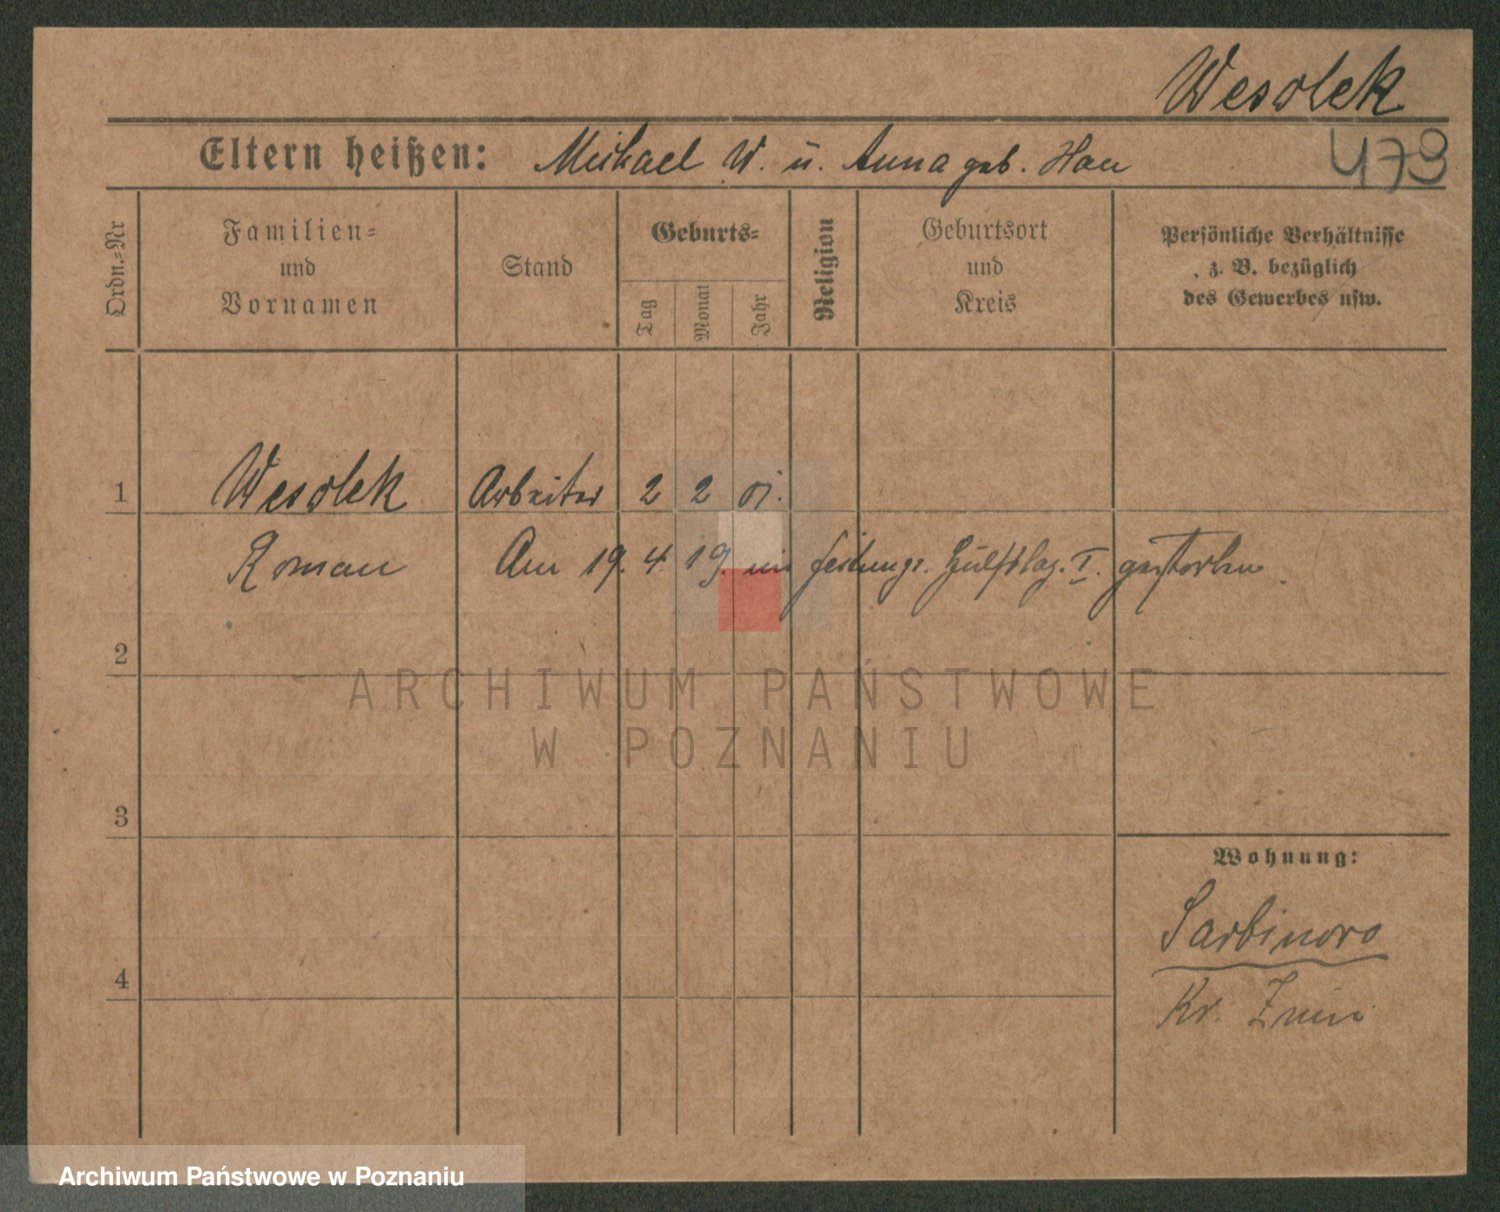 Wesolek
Eltern heißen: Michael W. u. Anna geb. Hau
473
Ordn.-Nr
Familien-
und
Vornamen
Stand
Geburts-
Tag
Monat
Jahr
Religion
Geburtsort
und
Kreis
Persönliche Verhältnisse
z. B. bezüglich
des Gewerbes usw.
1 Wesolek Arbeiter 2 2 01.
Roman Am 19. 4. 19. im Festungs. Hülfslaz. I. gestorben
2
ARCHIWUM PAŃSTWOWE
W POZNANIU
3
Wohnung:
Sarbinowo
4
Kr. Znin
Archiwum Państwowe w Poznaniu